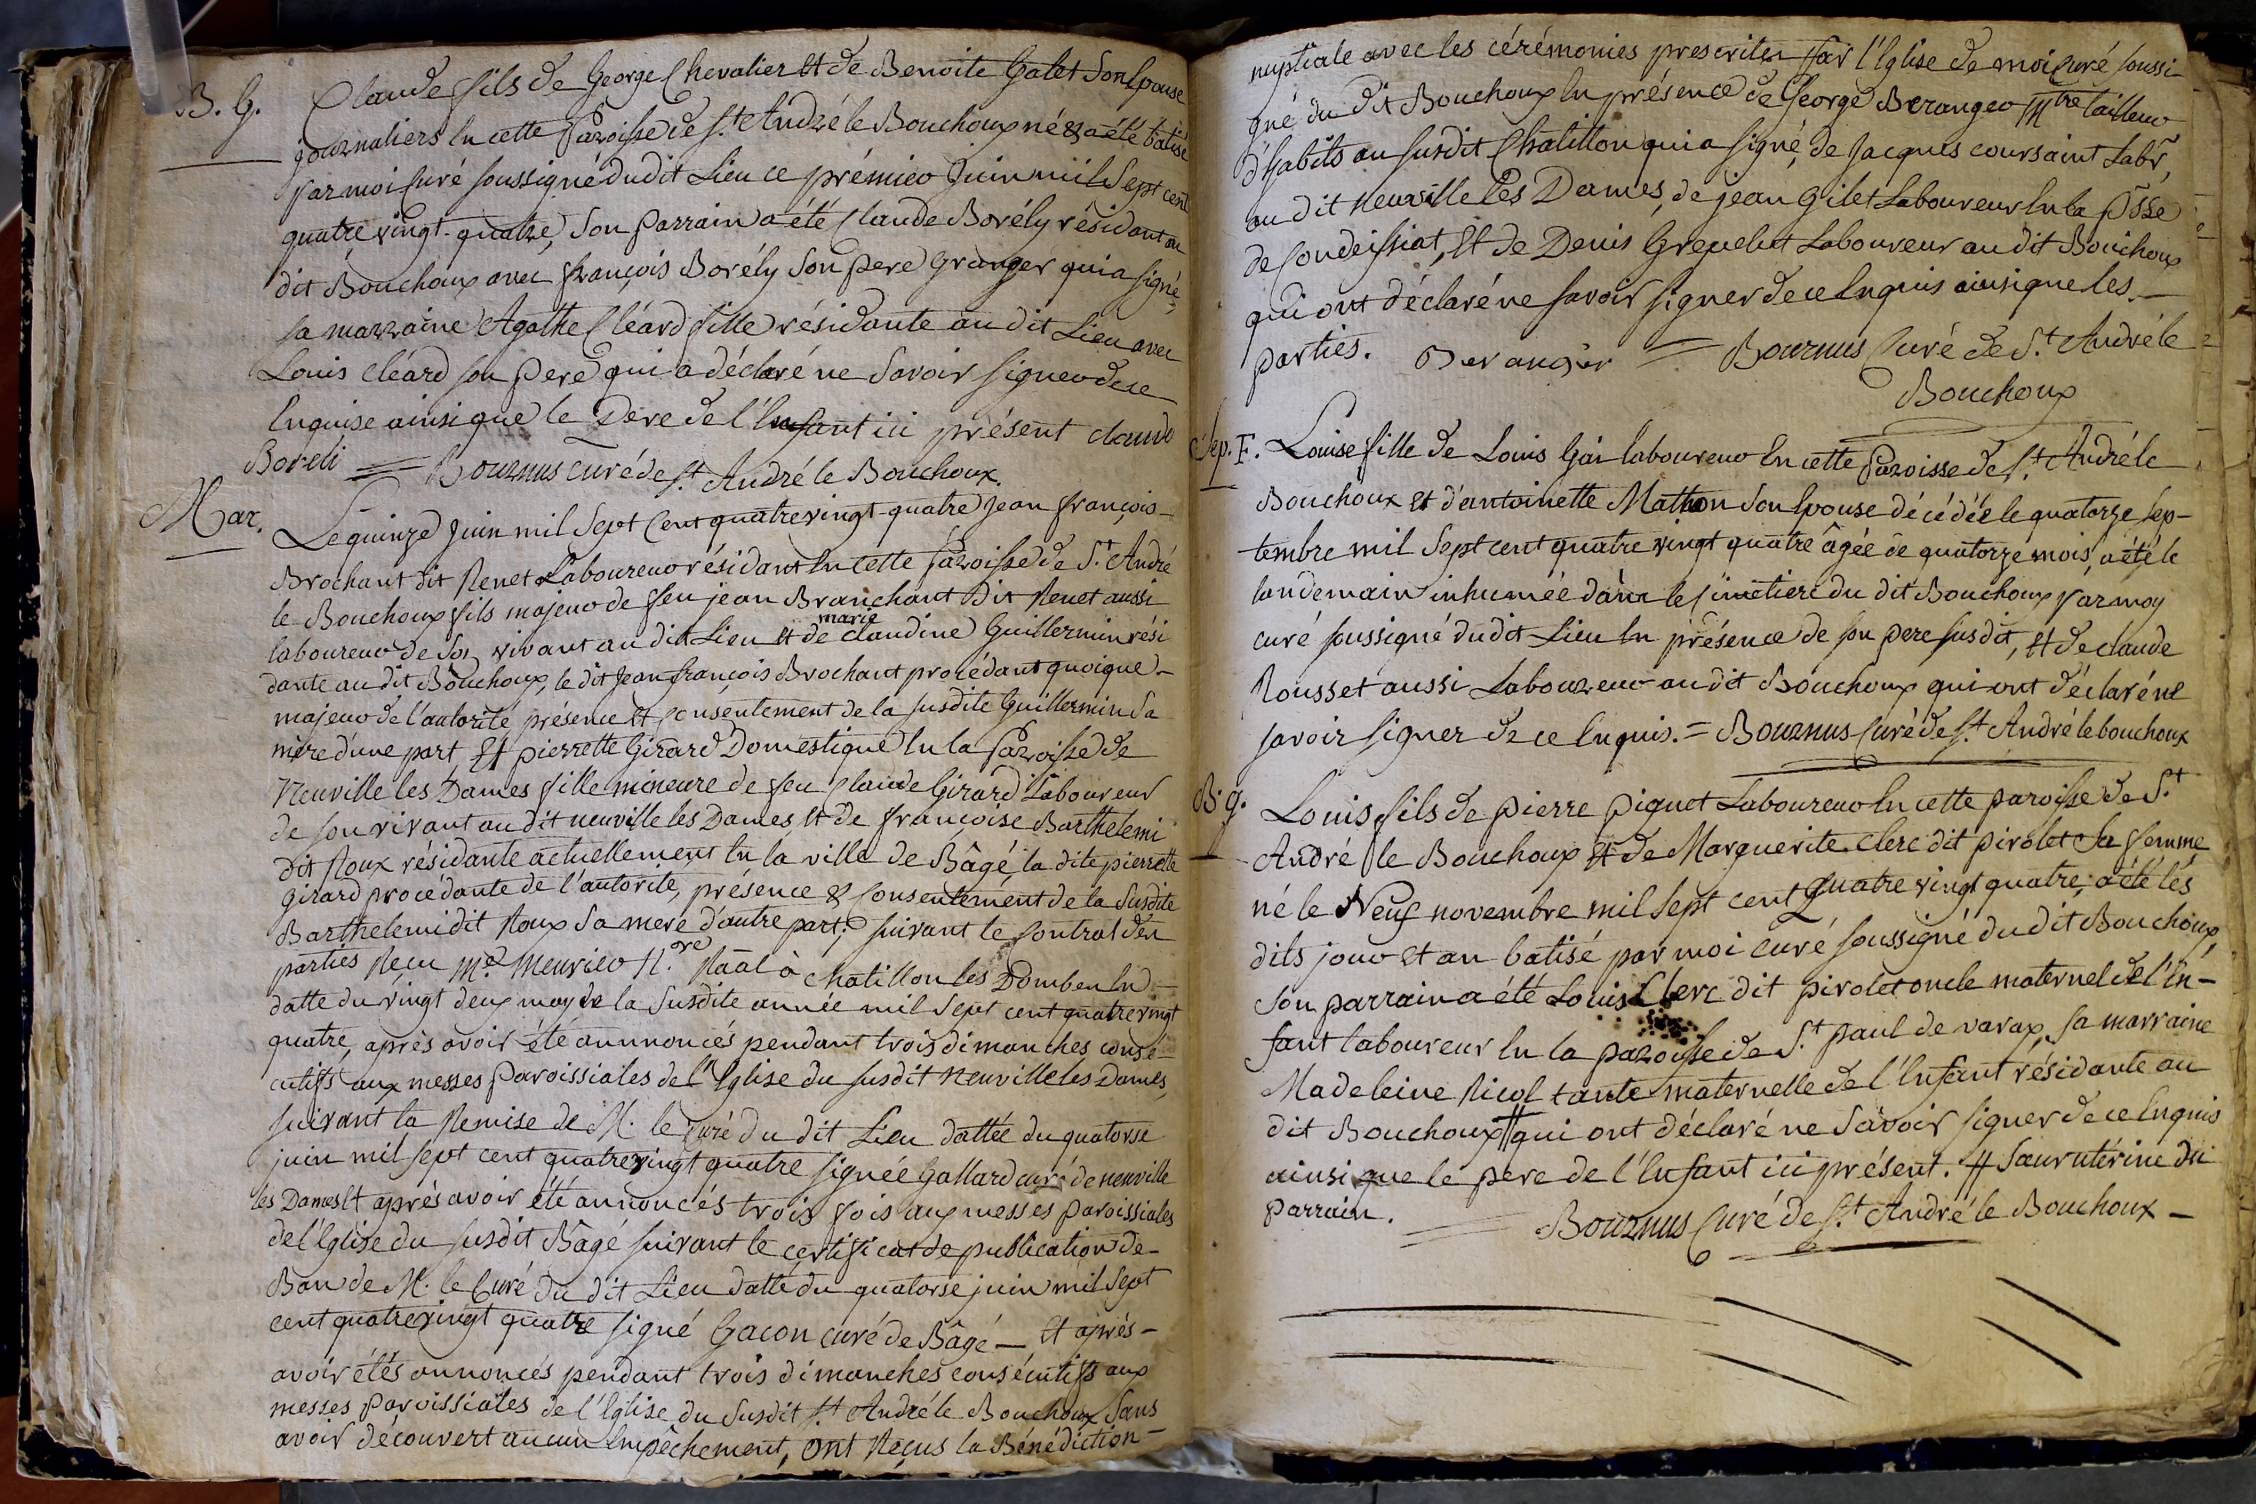 B. G. Claude fils de George Chevalier Et de Benoite Galet Son Epouse
journaliers En cette Paroisse de S.t André le Bouchoux né & a été batisé
Par moi Curé soussigné dudit Lieu ce prémier Juin mil Sept cent
quatre vingt-quatre, Son Parrain a été Claude Borély résidant au
dit Bouchoux avec françois Borély Son Pere Granger qui a signé,
sa marraine Agathe Cléard fille résidante au dit Lieu avec
Louis cléard son Pere qui a déclaré ne Savoir signer de ce
Enquise ainsi que le Pere de l'Enfant ici présent claude
Boreli = Bournus curé de S.t André le Bouchoux.
Mar. Le quinze Juin mil Sept Cent quatre vingt-quatre Jean François-
Brochant dit Renet Laboureur résidant En cette Paroisse de S.t André
le Bouchoux fils majeur de feu jean Branchant dit Renet aussi
laboureur de Son vivant au dit Lieu et de marie claudine Guillermin rési
dante au dit Bouchoux, le dit Jean françois Brochant procédant quoique-
majeur de l'autorité, présence et Consentement de la susdite Guillermin Sa
mère d'une part Et pierrette Girard Domestique En la Paroisse de
Neuville les Dames fille mineure de feu Claude Girard Laboureur
de son vivant au dit neuville les Dames Et de françoise Barthelemi
dit Roux résidante actuellement En la ville de Bâgé, la dite pierrette
Girard procédante de l'autorité, présence & Consentement de la Susdite
Barthelemi dit Roux Sa mere d'autre part; suivant le Contrat des
parties Reçu M.e meurier N.re Raal à Chatillon les Dombes En
datte du vingt deux may de la Susdite année mil Sept cent quatre vingt
quatre, après avoir été annnoncés pendant trois dimanches consé-
cutifs aux messes Paroissiales de l'Eglise du susdit Neuville les Dames,
suivant la Remise de M. le Curé du dit Lieu dattée du quatorse
juin mil sept cent quatre vingt quatre signée Gallard curé de neuville
les Dames Et après avoir été annoncés trois fois aux messes Paroissiales
de l'Eglise du susdit Bâgé suivant le certificat de publication de-
Ban de M. le Curé du dit Lieu datté du quatorse juin mil Sept
cent quatre vingt quatre signé Gacon curé de Bâgé — Et après-
avoir étés annoncés pendant trois dimanches consécutifs aux
messes Paroissiales de l'Eglise du Susdit S.t André le Bouchoux Sans
avoir découvert aucun Empêchement, ont Reçus la Bénédiction-
nuptiale avec les cérémonies prescrites Par l'Eglise de moi Curé soussi-
gné du dit Bouchoux En présence de George Beranger M.tre tailleur
d'habits au susdit Chatillon qui a signé, de Jacques coursaint Labr,
au dit neuville les Dames, de jean Gilet Laboureur En la P.sse
de Condeissiat, Et de Denis Grepelut Laboureur au dit Bouchoux
qui ont déclaré ne savoir signer de ce Enquis ainsi que les-
parties. Beranger = Bournus Curé de S.t André le
Bouchoux
Sep. F. Louise fille de Louis Gai laboureur En cette Paroisse de S.t André le
Bouchoux Et d'antoinette Mathon Son Epouse décédée le quatorze sep-
tembre mil Sept cent quatre vingt quatre âgée de quatorze mois, a été le
landemain inhumée dans le Cimetiere du dit Bouchoux Par moy
curé soussigné du dit Lieu En présence de son pere susdit, Et de claude
Rousset aussi Laboureur au dit Bouchoux qui ont déclaré ne
savoir signer de ce Enquis. = Bournus Curé de S.t André le bouchoux
B. g. Louis fils de pierre piquet Laboureur En cette paroisse de S.t
André le Bouchoux Et de Marguerite Clerc dit pirolet Sa femme
né le Neuf novembre mil sept cent quatre vingt quatre, a été lés
dits jour et an batisé par moi curé soussigné du dit Bouchoux,
Son parrain a été Louis Clerc dit pirolet oncle maternel de l'En-
fant laboureur En la paroisse de S.t paul de varax, sa marraine
Madeleine Nicol tante maternelle de l'Enfant résidante au
dit Bouchoux # qui ont déclaré ne Savoir signer de ce Enquis
ainsi que le pere de l'Enfant ici présent. # Sœur utérine du
parrain. = Bournus Curé de S.t André le Bouchoux —